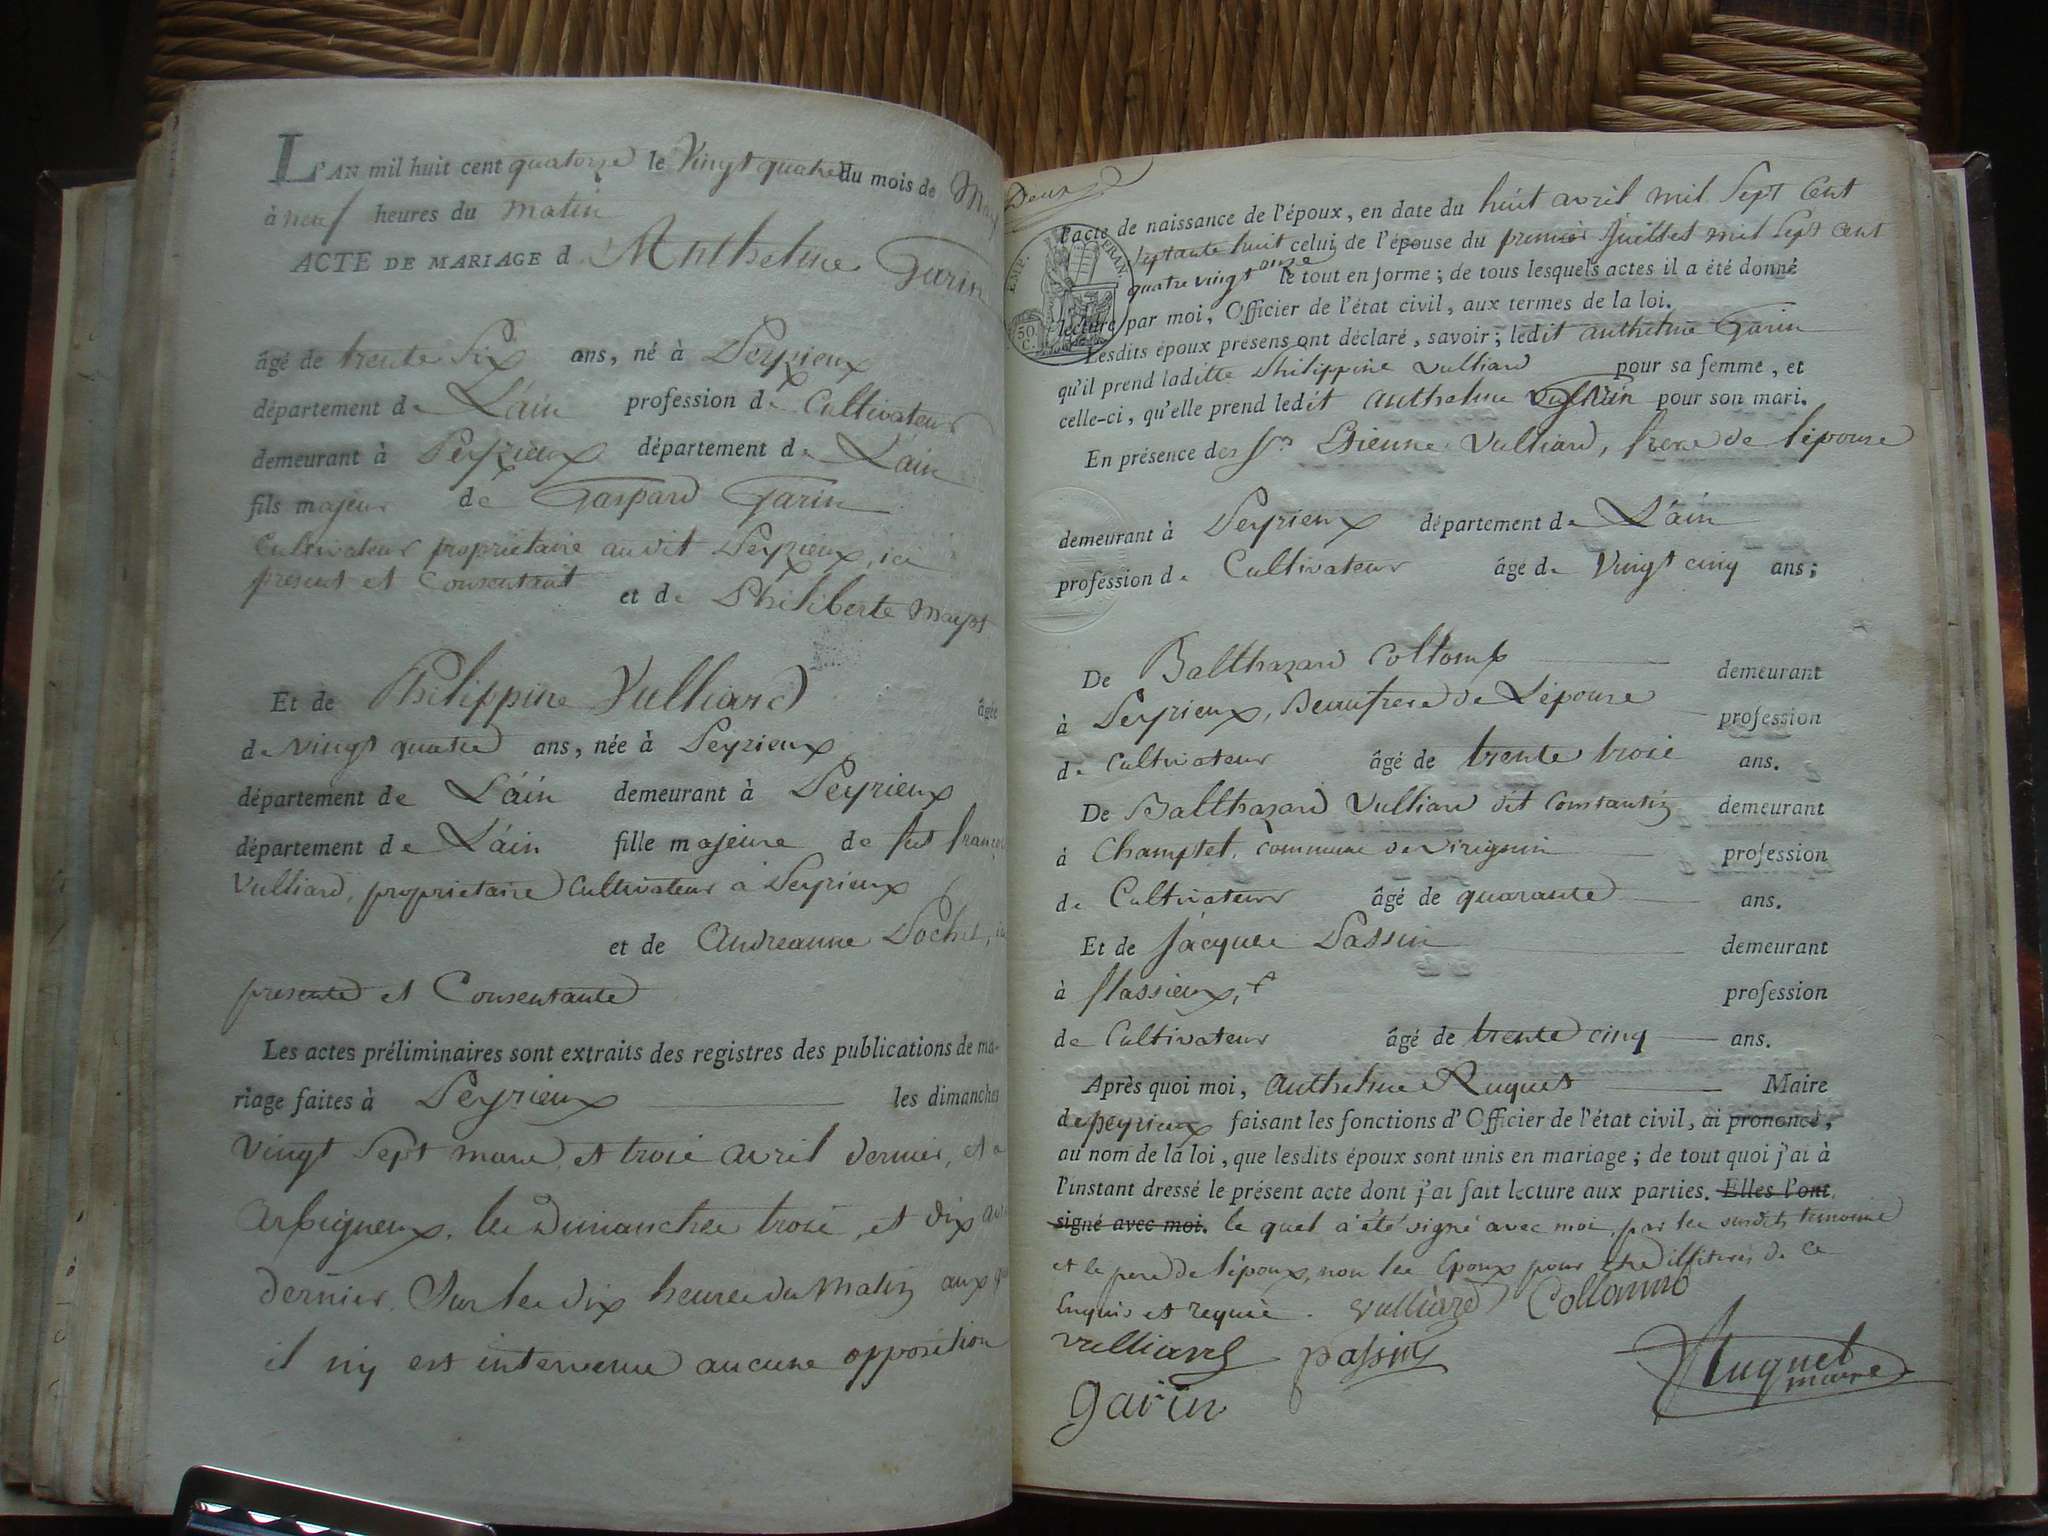 L'AN mil huit cent quatorze le Vingt quatre du mois de May
à neuf heures du matin
ACTE DE MARIAGE d Anthelme Garin
âgé de trente Six ans, né à Peyrieux
département de L'ain profession de Cultivateur
demeurant à Peyrieux département de L'ain
fils majeur de Gaspard Garin
Cultivateur propriétaire audit Peyrieux, ici
present et Consentant
et de Philiberte
Et de Philippine Vulliard âgée
de vingt quatre ans, née à Peyrieux
département de L'ain demeurant à Peyrieux
département de L'ain fille majeure de feu
Vulliard, proprietaire Cultivateur a Peyrieux
et de Andreanne Pochet,
presente et Consentante
Les actes préliminaires sont extraits des registres des publications de ma-
riage faites à Peyrieux les dimanches
vingt Sept mars, et trois avril dernier, et a
Arbignieux, les Dimanches trois, et dix
dernier. Sur les dix heures du matin
il n'y est intervenue aucune opposition
Deux
EMP. FRAN.
50 C.
l'acte de naissance de l'époux, en date du huit avril mil Sept Cent
septante huit celui de l'épouse du premier Juillet mil Sept cent
quatre vingt onze le tout en forme; de tous lesquels actes il a été donné
lecture par moi, Officier de l'état civil, aux termes de la loi.
Lesdits époux présens ont déclaré, savoir; ledit anthelme Garin
qu'il prend laditte Philippine vulliard pour sa femme, et
celle-ci, qu'elle prend ledit anthelme Garin pour son mari.
En présence des Srs Etienne Vulliard, frere de l'epouse
demeurant à Peyrieux département de L'ain
profession de Cultivateur âgé de Vingt cinq ans;
De Balthazard Collomb demeurant
à Peyrieux, Beaufrere de L'epouse profession
de Cultivateur âgé de trente trois ans.
De Balthazard Vulliard dit constantin demeurant
à Champtel, commune de virignin profession
de Cultivateur âgé de quarante ans.
Et de Jacques Passin demeurant
à flassieux, profession
de Cultivateur âgé de trente cinq ans.
Après quoi moi, anthelme Ruquet Maire
de peyrieux faisant les fonctions d'Officier de l'état civil, ai prononcé,
au nom de la loi, que lesdits époux sont unis en mariage; de tout quoi j'ai à
l'instant dressé le présent acte dont j'ai fait lecture aux parties. Elles l'ont
signé avec moi. le quel a été signé avec moi, par les susdits temoins
et le pere de l'époux, non les Epoux pour etre illitirés de ce
Enquis et requis. vulliard Collomb
vulliard passin
garin
Ruquet
maire